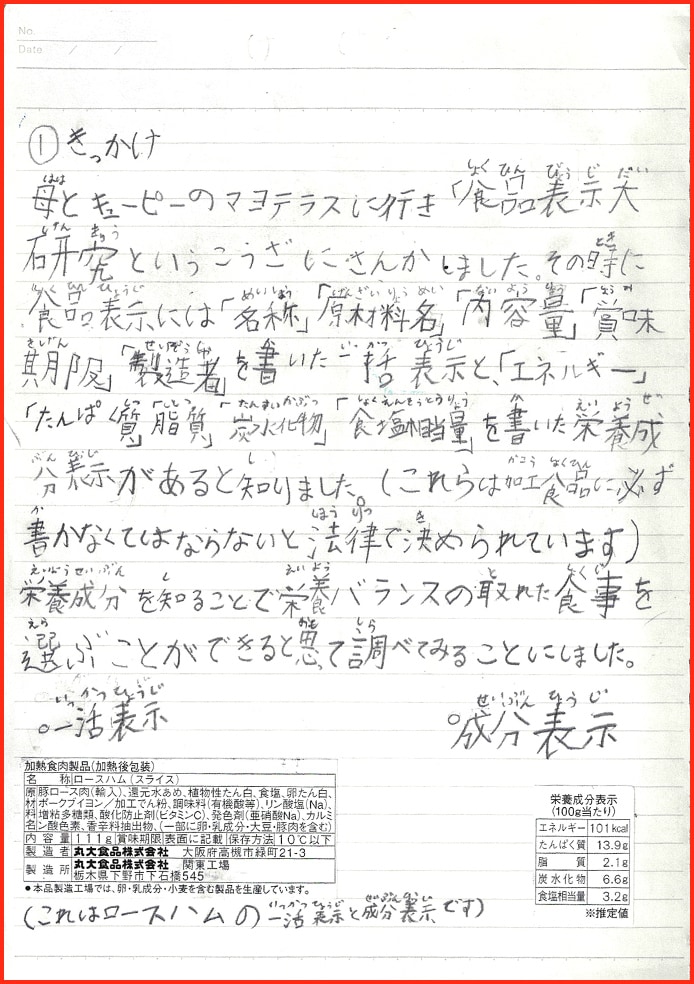 No.
Date / /
① きっかけ
母とキューピーのマヨテラスに行き「食品表示大
研究というこうざにさんかしました。その時に
食品表示には「名称」「原材料名」「内容量」「賞味
期限」「製造者」を書いた一括表示と、「エネルギー」
「たんぱく質」「脂質」「炭水化物」「食塩相当量」を書いた栄養成
分表示があると知りました。(これらは加工食品に必ず
書かなくてはならないと法律で決められています)
栄養成分を知ることで栄養バランスの取れた食事を
選ぶことができると思って調べてみることにしました。
○一活表示
○成分表示
加熱食肉製品(加熱後包装)
名 称 ロースハム (スライス)
原材料名 豚ロース肉(輸入)、還元水あめ、植物性たん白、食塩、卵たん白、
ポークブイヨン／加工でん粉、調味料(有機酸等)、リン酸塩(Na)、
増粘多糖類、酸化防止剤(ビタミンC)、発色剤(亜硝酸Na)、カルミ
ン酸色素、香辛料抽出物、(一部に卵・乳成分・大豆・豚肉を含む)
内容量 111g 賞味期限 表面に記載 保存方法 10℃以下
製造者 丸大食品株式会社 大阪府高槻市緑町21-3
製造所 丸大食品株式会社 関東工場
栃木県下野市下石橋545
●本品製造工場では、卵・乳成分・小麦を含む製品を生産しています。
栄養成分表示
(100g当たり)
エネルギー 101kcal
たんぱく質 13.9g
脂質 2.1g
炭水化物 6.6g
食塩相当量 3.2g
※推定値
(これはロースハムの一活表示と成分表示です)